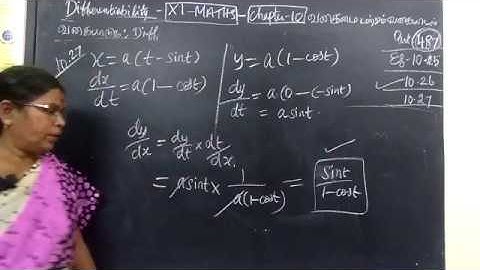 Differentiability - XI-MATHS - Chapter-10
10.27
x = a(t - sint)
dx/dt = a(1 - cost)
y = a(1 - cost)
dy/dt = a(0 - (-sint)
= a sint
Eg-10.25
10.26
10.27
dy/dx = dy/dt × dt/dx
= a sint × 1/a(1-cost) = sint/1-cost